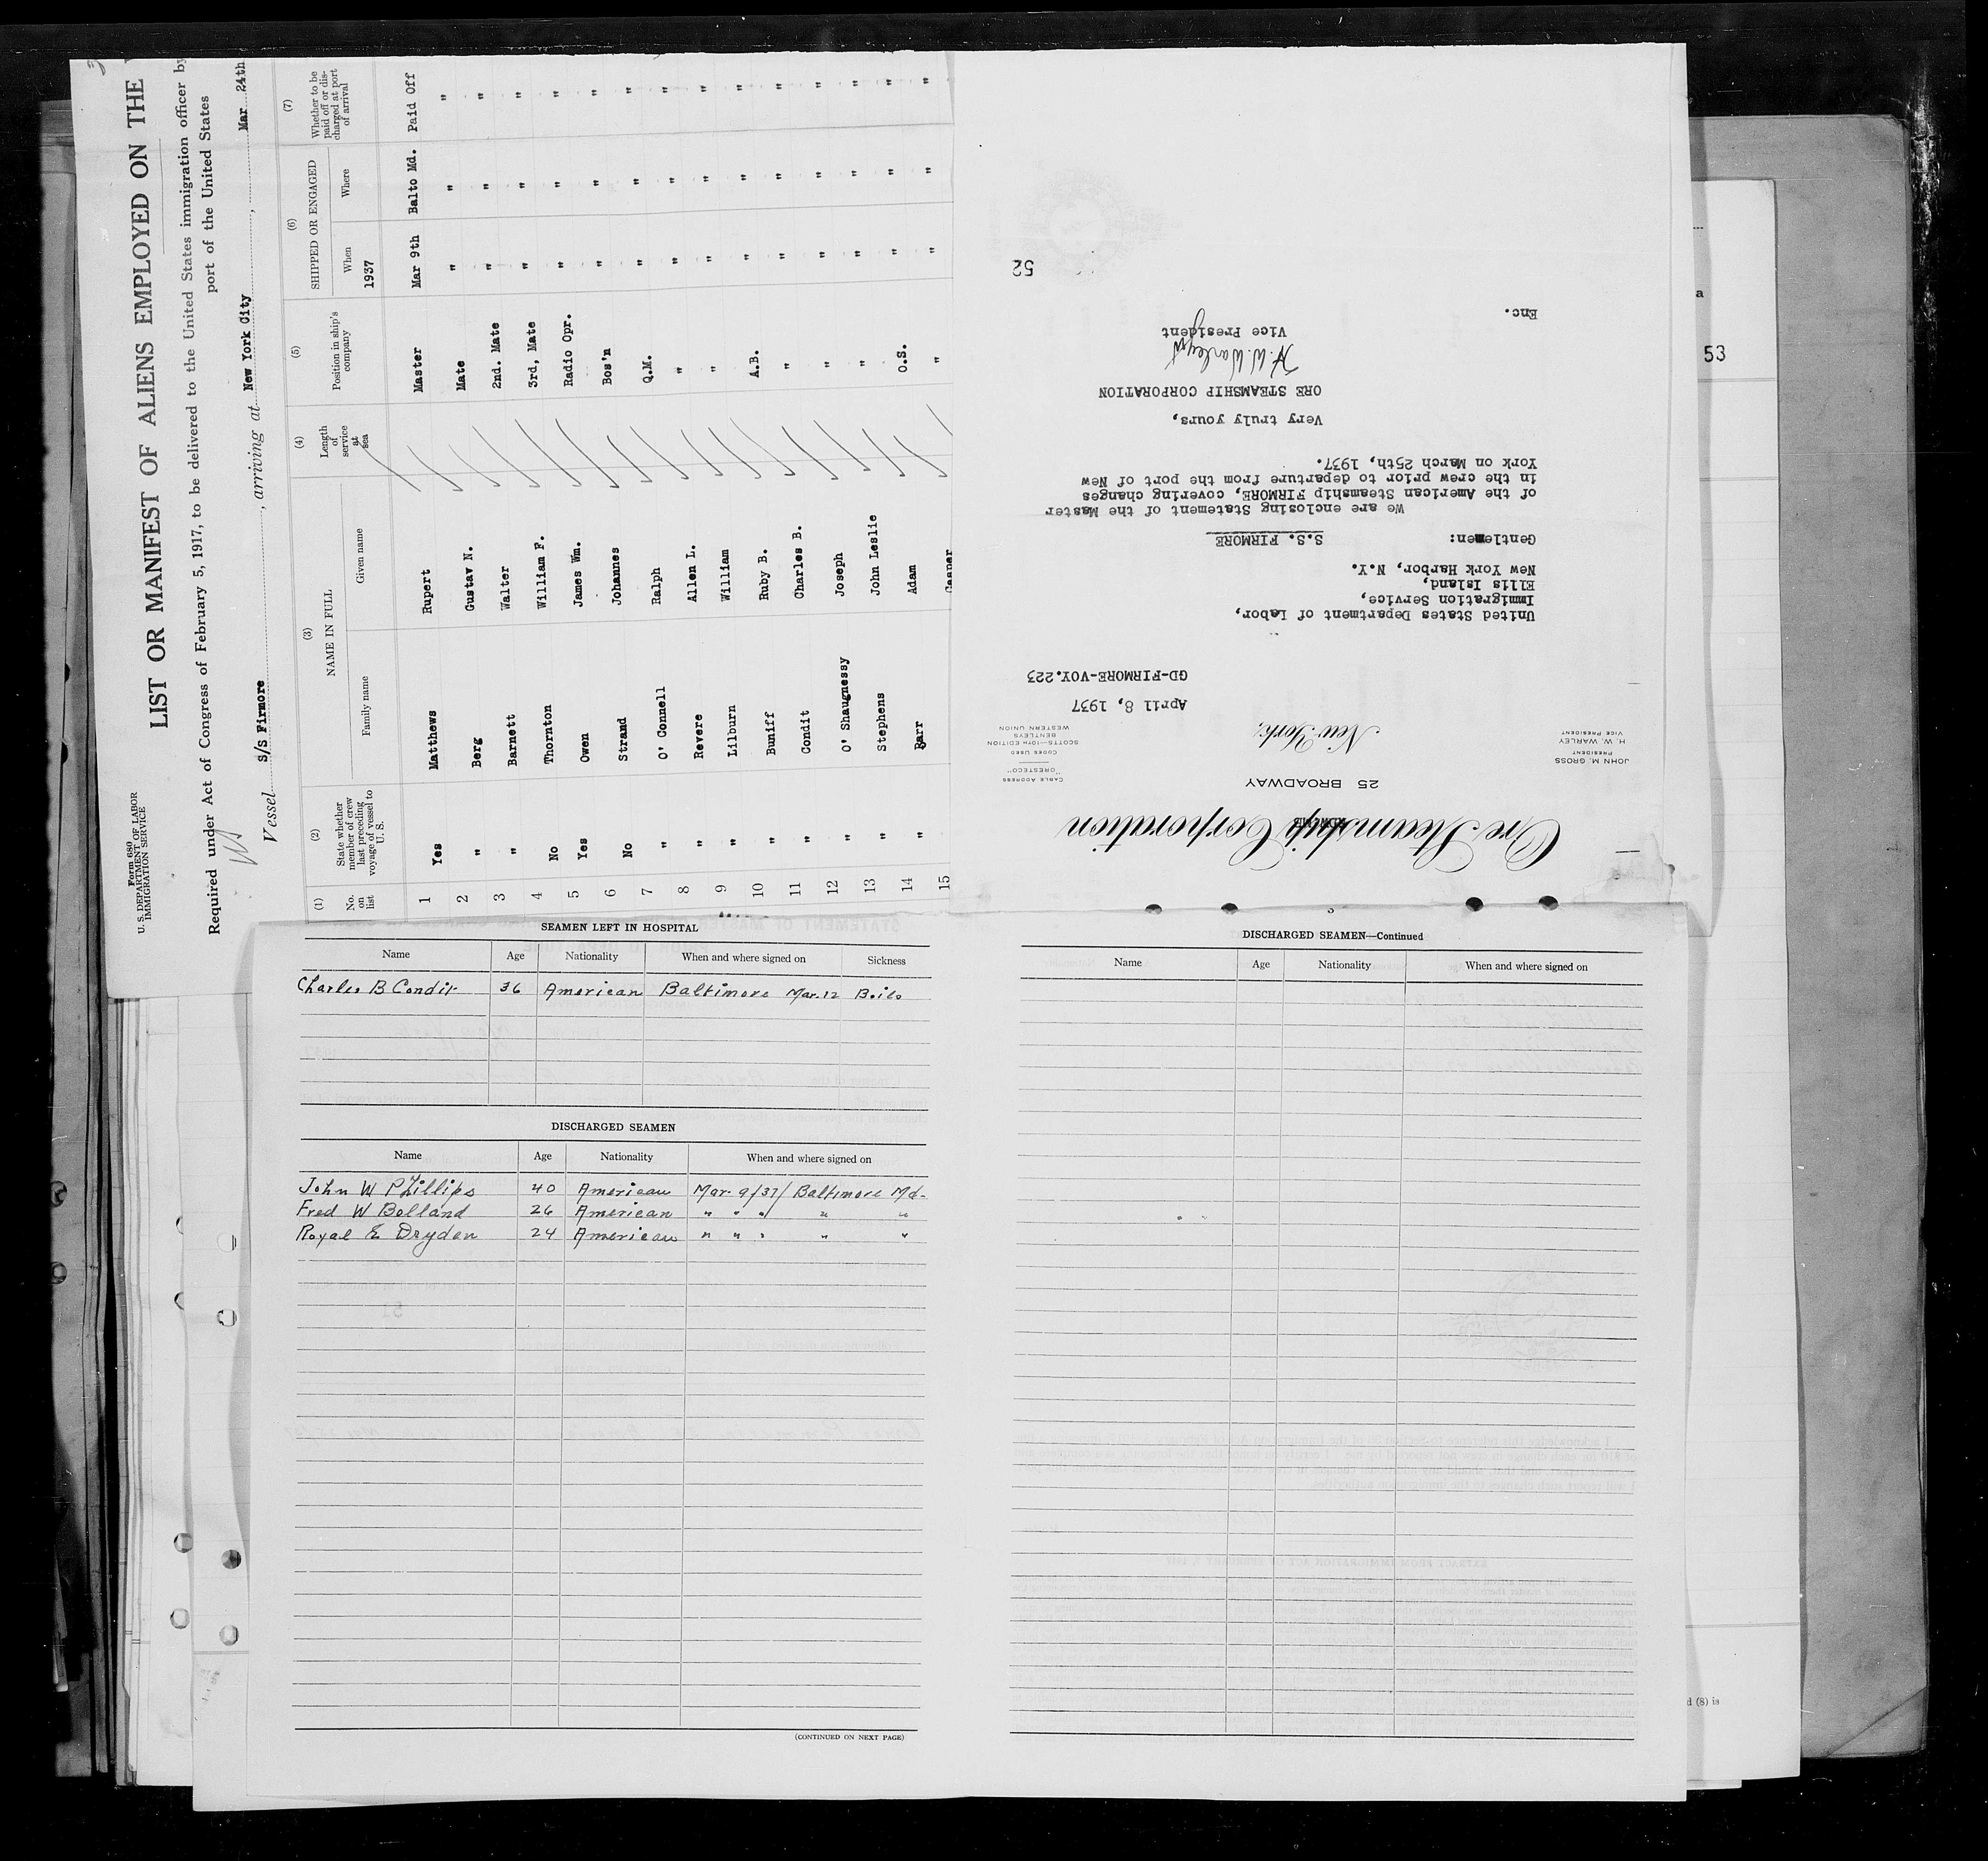 Form 680
U. S. DEPARTMENT OF LABOR
IMMIGRATION SERVICE
LIST OR MANIFEST OF ALIENS EMPLOYED ON THE
Required under Act of Congress of February 5, 1917, to be delivered to the United States immigration officer by
port of the United States
Vessel S/S Firmore, arriving at New York City, Mar 24th
(1) (2) (3) (4) (5) (6) (7)
No. on list
State whether member of crew last preceding voyage of vessel to U. S.
NAME IN FULL
Family name Given name
Length of service at sea
Position in ship's company
SHIPPED OR ENGAGED
When Where
1937
Whether to be paid off or discharged at port of arrival
1 Yes Matthews Rupert Master Mar 9th Balto Md. Paid Off
2 " Berg Gustav N. Mate " " "
3 " Barnett Walter 2nd. Mate " " "
4 No Thornton William F. 3rd, Mate " " "
5 Yes Owen James Wm. Radio Opr. " " "
6 No Strand Johannes Bos'n " " "
7 " O' Connell Ralph Q.M. " " "
8 " Revere Allen L. " " " "
9 " Lilburn William " " " "
10 " Buniff Ruby B. A.B. " " "
11 " Condit Charles B. " " " "
12 " O' Shaugnessy Joseph " " " "
13 " Stephens John Leslie " " " "
14 " Barr Adam O.S. " " "
15 Casper " " " "
Ore Steamship Corporation
25 BROADWAY
New York,
JOHN M. GROSS
PRESIDENT
H. W. WARLEY
VICE PRESIDENT
CABLE ADDRESS
"ORESTECO"
CODES USED
SCOTTS—10TH EDITION
BENTLEYS
WESTERN UNION
April 8, 1937
GD-FIRMORE-VOY.223
United States Department of Labor,
Immigration Service,
Ellis Island,
New York Harbor, N.Y.
Gentlemen: S.S. FIRMORE
We are enclosing Statement of the Master
of the American Steamship FIRMORE, covering changes
in the crew prior to departure from the port of New
York on March 25th, 1937.
Very truly yours,
ORE STEAMSHIP CORPORATION
H.W. Warley
Vice President
Enc.
52
53
a
d (8) is
SEAMEN LEFT IN HOSPITAL
Name Age Nationality When and where signed on Sickness
Charles B Condit 36 American Baltimore Mar. 12 Boils
DISCHARGED SEAMEN
Name Age Nationality When and where signed on
John W Phillips 40 American Mar 9/37/ Baltimore Md-
Fred W Bolland 26 American " " " " "
Royal E Dryden 24 American " " " " "
(CONTINUED ON NEXT PAGE)
DISCHARGED SEAMEN—Continued
Name Age Nationality When and where signed on